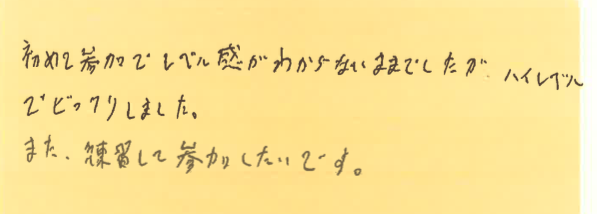 初めて参加でレベル感がわからないままでしたが、ハイレベル
でビックリしました。
また、練習して参加したいです。